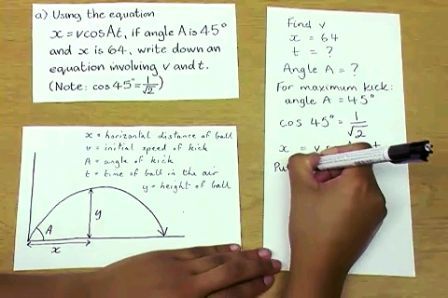 a) Using the equation
x = v cos At, if angle A is 45°
and x is 64, write down an
equation involving v and t.
(Note: cos 45° = 1/√2)
x = horizontal distance of ball
v = initial speed of kick
A = angle of kick
t = time of ball in the air
y = height of ball
A
y
x
Find v
x = 64
t = ?
Angle A = ?
For maximum kick:
angle A = 45°
cos 45° = 1/√2
x = v
t